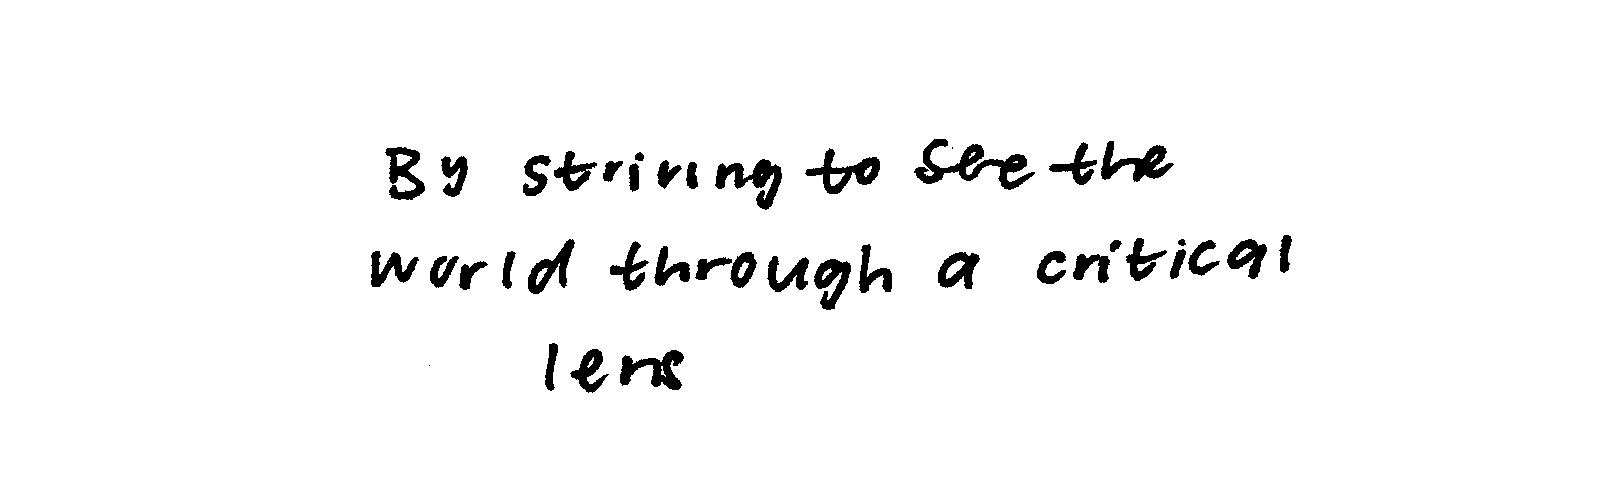 By striving to see the
world through a critical
lens